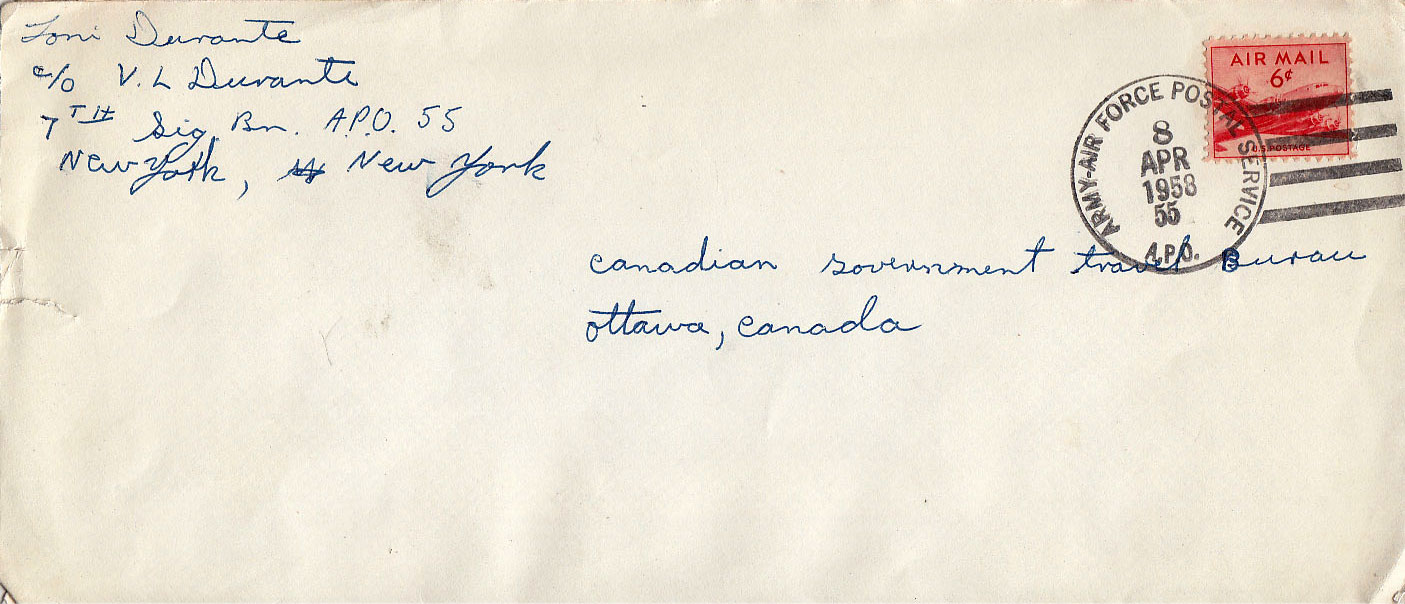 Toni Durante
c/o V. L Durante
7TH Sig. Bn. A.P.O. 55
New York, New York
AIR MAIL
6¢
U.S. POSTAGE
ARMY-AIR FORCE POSTAL SERVICE
8
APR
1958
55
A.P.O.
canadian government travel Burau
ottawa, canada